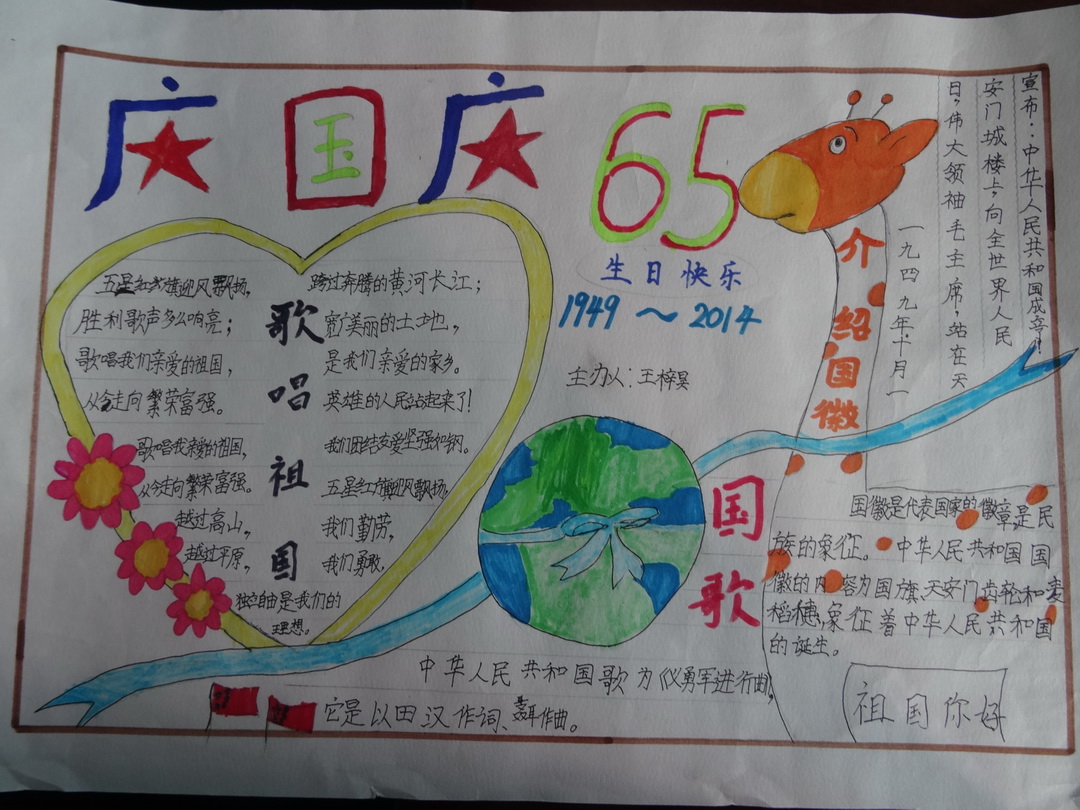 庆国庆
65
生日快乐
1949～2014
主办人：王梓昊
歌唱祖国
五星红旗迎风飘扬，
胜利歌声多么响亮；
歌唱我们亲爱的祖国，
从今走向繁荣富强。
歌唱我亲爱的祖国，
从今走向繁荣富强。
越过高山，
越过平原，
跨过奔腾的黄河长江；
宽美丽的土地，
是我们亲爱的家乡。
英雄的人民站起来了！
我们团结友爱坚强如钢。
五星红旗迎风飘扬，
我们勤劳，
我们勇敢，
独自由是我们的
理想。
一九四九年，十月一
日，伟大领袖毛主席，站在天
安门城楼上，向全世界人民
宣布：：中华人民共和国成立！
介绍国徽
国徽是代表国家的徽章是民
族的象征。中华人民共和国国
徽的内容为国旗、天安门、齿轮和麦
稻穗，象征着中华人民共和国
的诞生。
国歌
中华人民共和国歌为《义勇军进行曲，
它是以田汉作词、聂耳作曲。
祖国你好